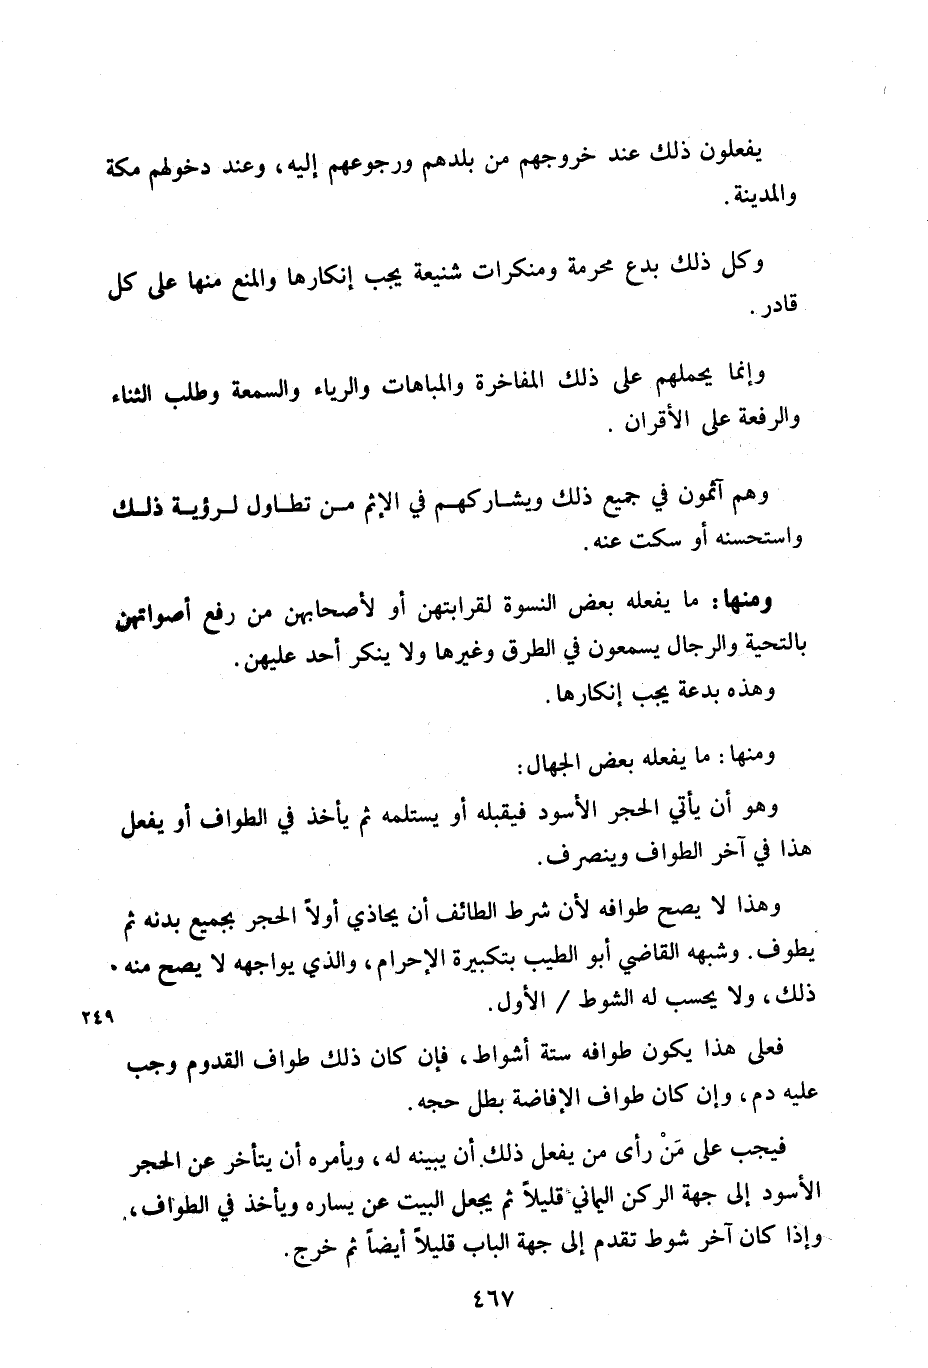 يفعلون ذلك عند خروجهم من بلدهم ورجوعهم إليه، وعند دخولهم مكة
والمدينة.
وكل ذلك بدع محرمة ومنكرات شنيعة يجب إنكارها والمنع منها على كل
قادر.
وإنما يحملهم على ذلك المفاخرة والمباهات والرياء والسمعة وطلب الثناء
والرفعة على الأقران .
وهم آثمون في جميع ذلك ويشاركهم في الإثم من تطاول لرؤية ذلك
واستحسنه أو سكت عنه.
ومنها: ما يفعله بعض النسوة لقرابتهن أو لأصحابهن من رفع أصواتهن
بالتحية والرجال يسمعون في الطرق وغيرها ولا ينكر أحد عليهن.
وهذه بدعة يجب إنكارها.
ومنها: ما يفعله بعض الجهال:
وهو أن يأتي الحجر الأسود فيقبله أو يستلمه ثم يأخذ في الطواف أو يفعل
هذا في آخر الطواف وينصرف.
وهذا لا يصح طوافه لأن شرط الطائف أن يحاذي أولاً الحجر بجميع بدنه ثم
يطوف. وشبهه القاضي أبو الطيب بتكبيرة الإحرام، والذي يواجهه لا يصح منه
ذلك، ولا يحسب له الشوط / الأول.
٢٤٩
فعلى هذا يكون طوافه ستة أشواط، فإن كان ذلك طواف القدوم وجب
عليه دم، وإن كان طواف الإفاضة بطل حجه.
فيجب على مَنْ رأى من يفعل ذلك أن يبينه له، ويأمره أن يتأخر عن الحجر
الأسود إلى جهة الركن اليماني قليلاً ثم يجعل البيت عن يساره ويأخذ في الطواف،
وإذا كان آخر شوط تقدم إلى جهة الباب قليلاً أيضاً ثم خرج.
٤٦٧